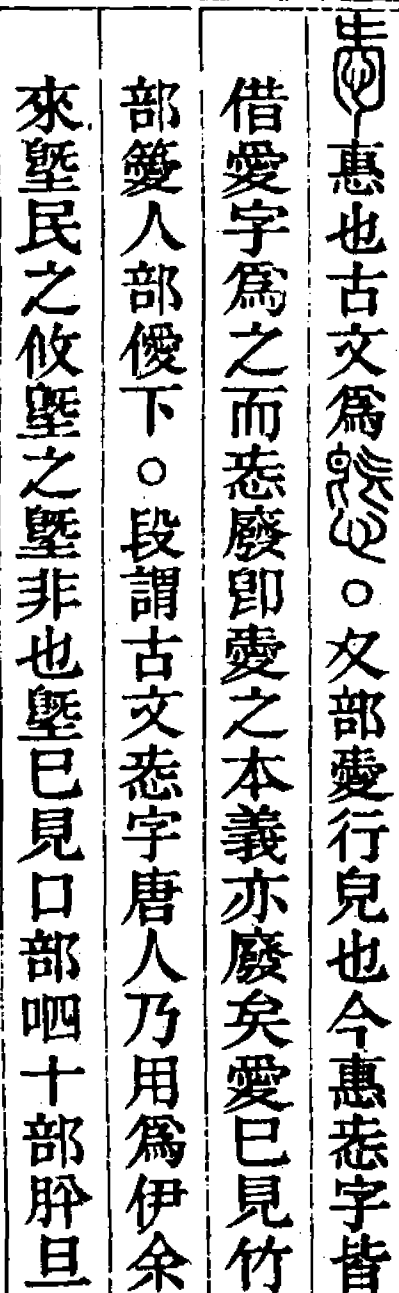 㤅惠也古文爲𢟪○夊部愛行皃也今惠㤅字皆
借愛字爲之而㤅廢卽愛之本義亦廢矣愛巳見竹
部𥴨人部僾下○段謂古文㤅字唐人乃用爲伊余
來塈民之攸塈之塈非也塈巳見口部呬十部肸旦